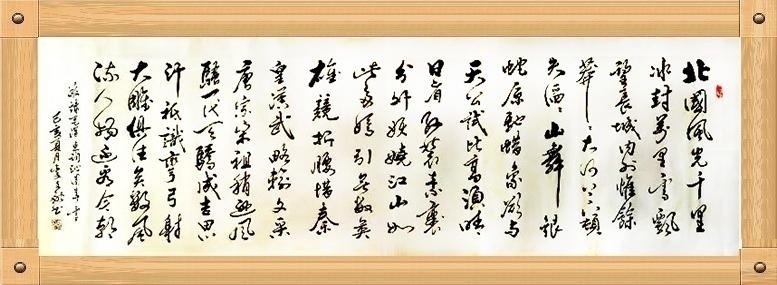 北國風光千里
冰封萬里雪飄
望長城內外惟餘
莽々大河上下頓
失滔々山舞銀
蛇原馳蠟象欲與
天公試比高須晴
日看紅裝素裹
分外妖嬈江山如
此多嬌引無數英
雄競折腰惜秦
皇漢武略輸文采
唐宗宋祖稍遜風
騷一代天驕成吉思
汗祇識彎弓射
大雕俱往矣數風
流人物還看今朝
澤東詞沁園春雪
己亥夏月書